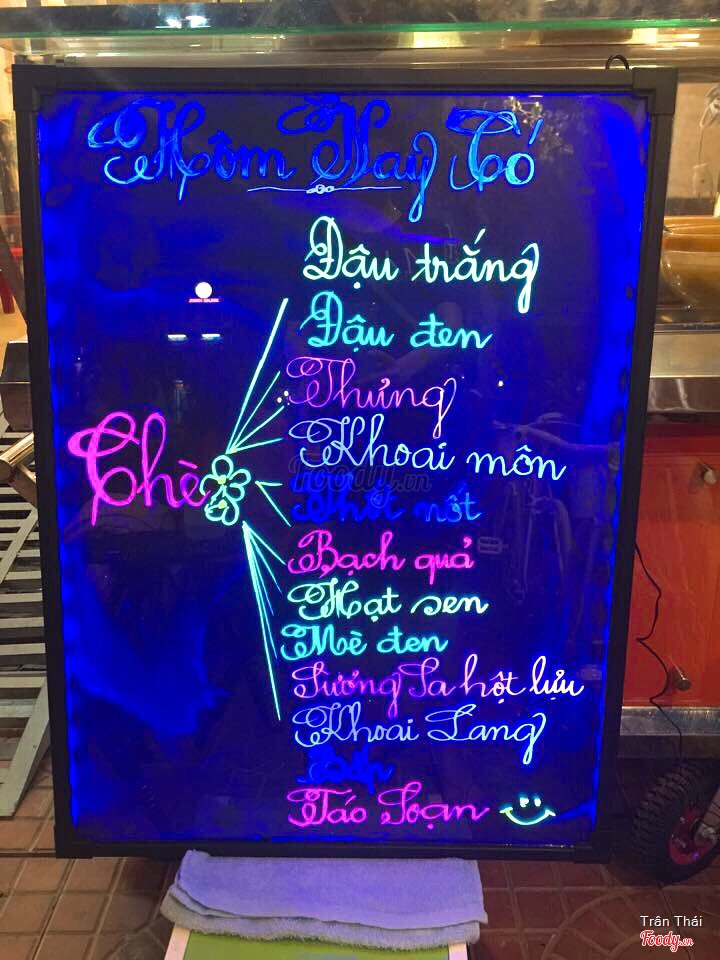 Hôm Nay Có
Đậu trắng
Đậu đen
Thưng
Chè
Khoai môn
Thốt nốt
Bạch quả
Hạt sen
Mè đen
Sương Sa hột lựu
Khoai Lang
Bắp
Táo Soạn
Foody.vn
Trân Thái
Foody.vn